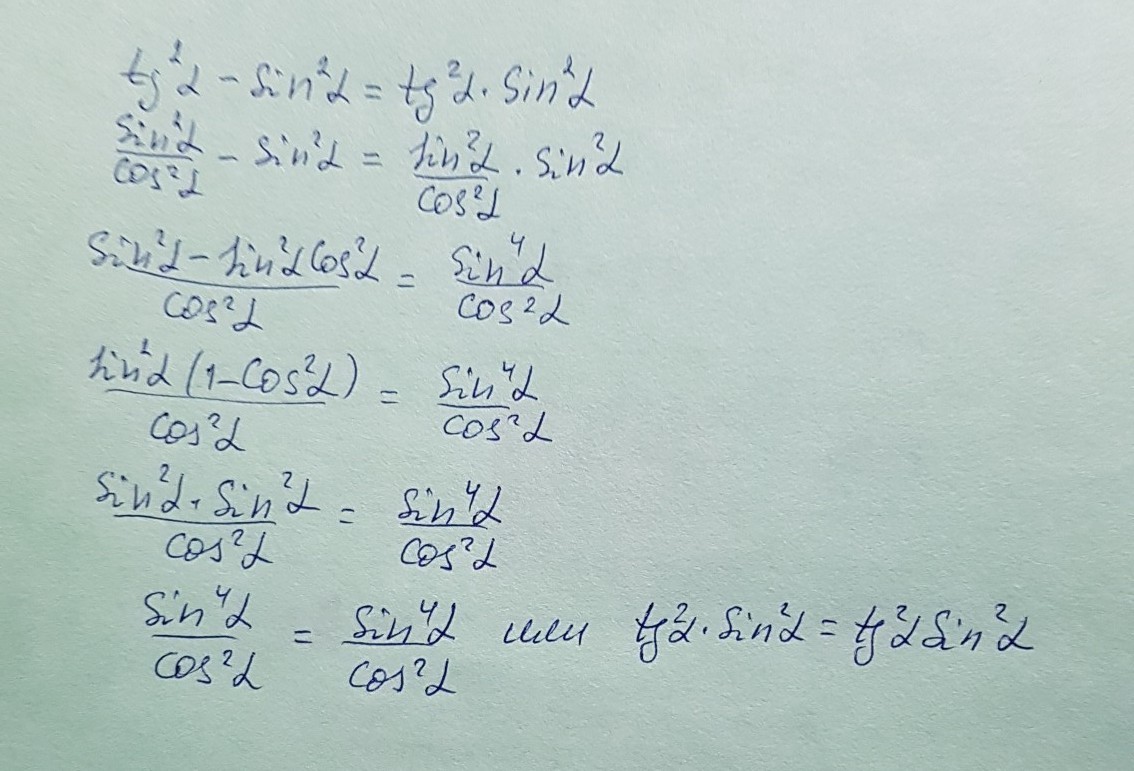 tg²α - Sin²α = tg²α · Sin²α
Sin²α/Cos²α - Sin²α = Sin²α/Cos²α · Sin²α
(Sin²α - Sin²α Cos²α)/Cos²α = Sin⁴α/Cos²α
Sin²α (1-Cos²α)/Cos²α = Sin⁴α/Cos²α
Sin²α · Sin²α/Cos²α = Sin⁴α/Cos²α
Sin⁴α/Cos²α = Sin⁴α/Cos²α или tg²α · Sin²α = tg²α Sin²α